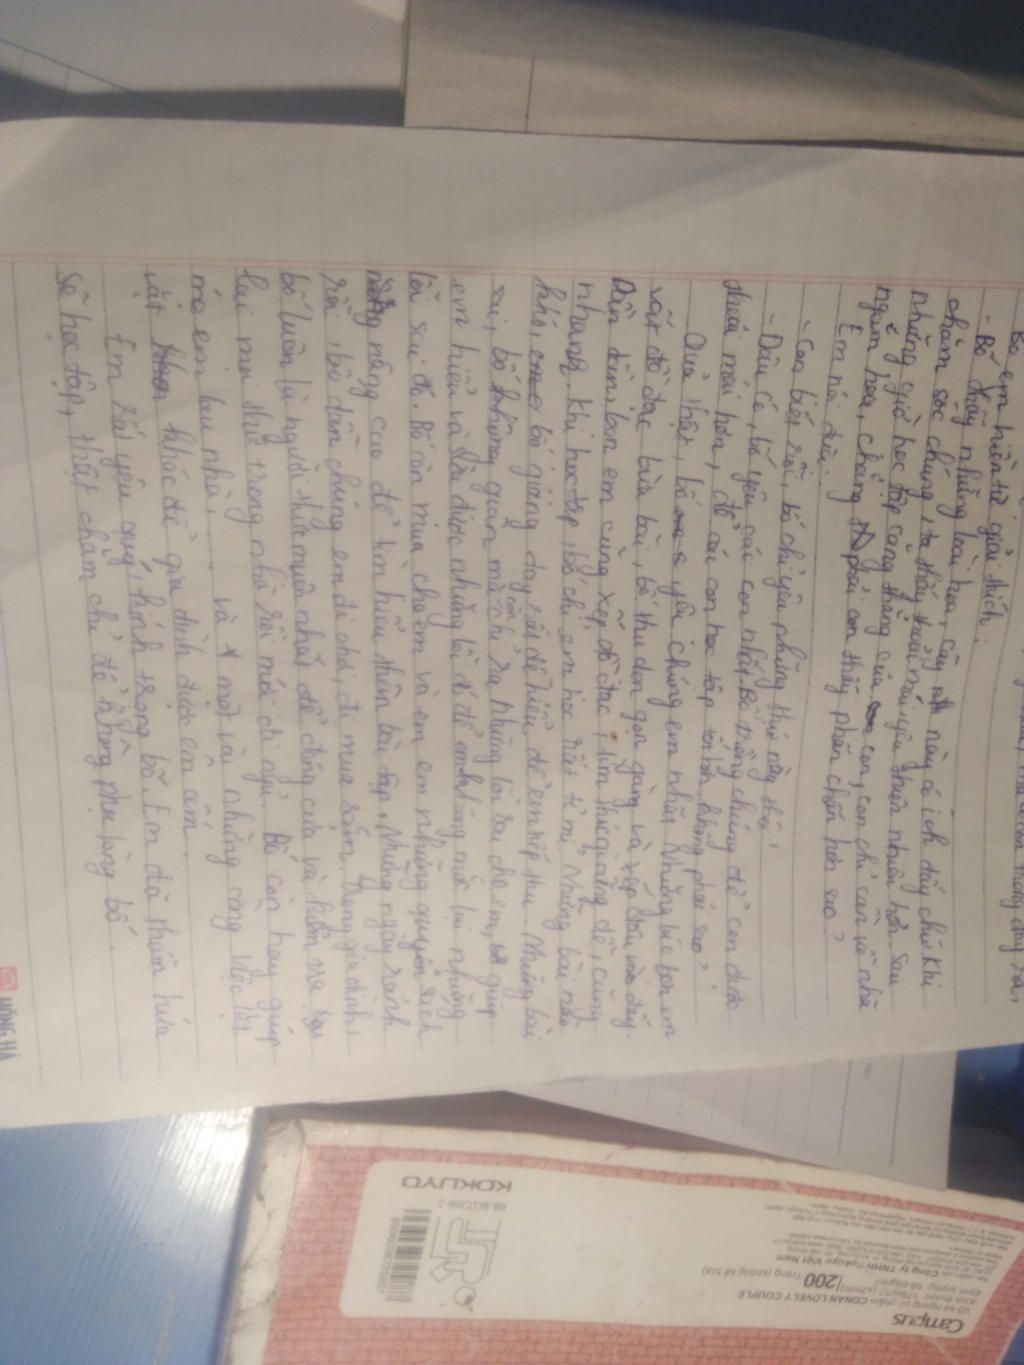 Bố em hiền từ giải thích:
- Bố thấy những loài hoa, cây này có ích đấy chứ. Khi
chăm sóc chúng, ta thấy thêm yêu thiên nhiên hơn. Sau
những giờ học tập căng thẳng của con, con chỉ cần về nhà
ngắm hoa, chẳng phải con thấy phấn chấn hơn sao?
Em nói dỗi:
- Con biết rồi, bố chỉ yêu những thứ này thôi,
- Đâu có, bố yêu các con nhất. Bố trồng chúng để con được
thoải mái hơn, để các con học tập tốt hơn không phải sao?
Quả thật, bố yêu chúng em nhất. Những lúc bọn em
vứt đồ đạc bừa bãi, bố thu dọn gọn gàng và xếp đâu vào đấy.
Dần dần, bọn em cũng xếp đồ đạc, tìm thì dễ, cũng
nhanh. Khi học tập, bố chỉ em học rất tỉ mỉ. Những bài nào
khó, bố giảng dạy rất dễ hiểu để em tiếp thu. Những bài
sai, bố không quan mà còn chỉ ra những lỗi sai cho em, giúp
em hiểu và sửa được những lỗi đó để em không mắc lại những
lỗi sai đó. Bố còn mua cho em và em em những quyển sách
nâng cao để tìm hiểu thêm bài tập. Những ngày rảnh
rỗi, bố dẫn chúng em đi chơi, đi mua sắm. Trong gia đình,
bố luôn là người thức muộn nhất để đóng cửa và kiểm tra
lại mọi thứ trong nhà rồi mới đi ngủ. Bố còn hay giúp
mẹ em lau nhà,... và một vài những công việc lặt
vặt khác để gia đình được êm ấm.
Em rất yêu quý, kính trọng bố. Em đã thầm hứa
sẽ học tập, thật chăm chỉ để không phụ lòng bố.
HỒNG HÀ
KOKUYO
NB-BCLC200-2
Campus
Vở kẻ ngang có chấm CONAN LOVELY COUPLE
200 Trang (không kể bìa)
Công ty TNHH Kokuyo Việt Nam